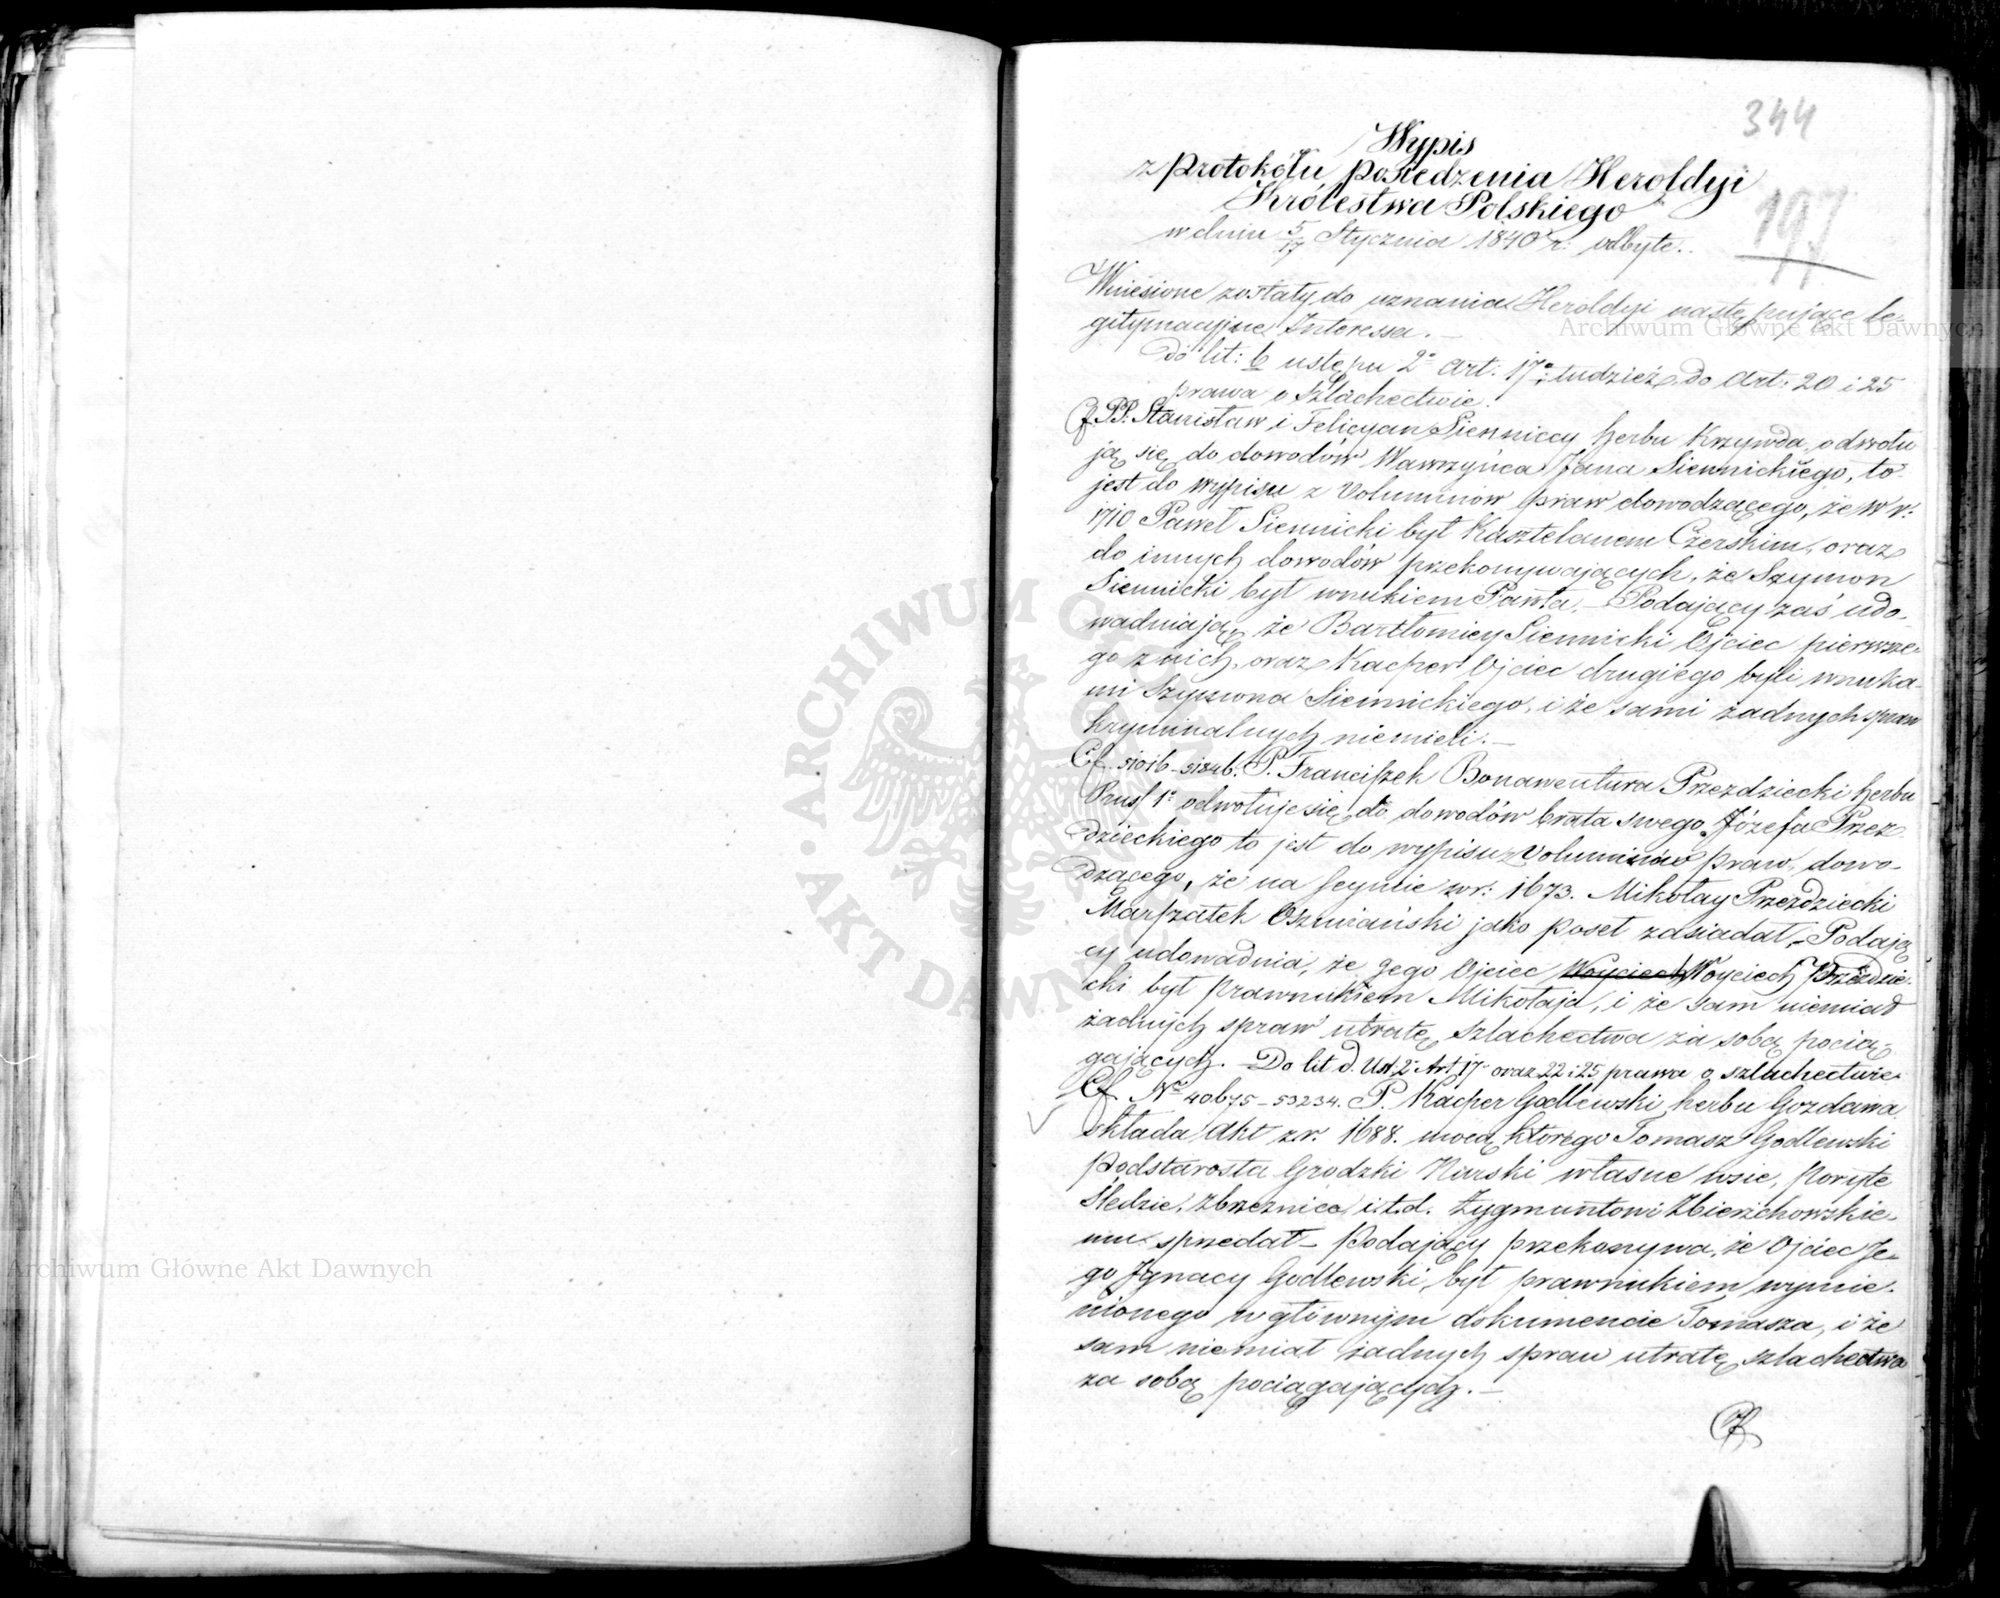 344
Wypis
z protokółu posiedzenia Heroldyi
Królestwa Polskiego
w dniu 5/17 Stycznia 1840 r. odbyte.
197
Wniesione zostały do uznania Heroldyi następujące le-
gitymacyjne Interessa. —
Do lit: b ustępu 2° Art: 17° tudzież do Art: 20 i 25
prawa o Szlachectwie.
PP. Stanisław i Felicyan Sienniccy herbu Krzywda, odwołu
ją się do dowodów Wawrzyńca Jana Siennickiego, to
jest do wypisu z Voluminów praw dowodzącego, że w r:
1710 Paweł Siennicki był Kasztelanem Czerskim, oraz
do innych dowodów przekonywających, że Szymon
Siennicki był wnukiem Pawła. — Podający zaś udo-
wadniają, że Bartłomiey Siennicki Ojciec pierwsze-
go z nich, oraz Kacper Ojciec drugiego byli wnuka-
mi Szymona Siennickiego, i że sami żadnych spraw
kryminalnych niemieli. —
51016-51846. P. Franciszek Bonawentura Przezdziecki herbu
Prus 1° odwołuje się do dowodów brata swego Józefa Przez
dzieckiego to jest do wypisu z Voluminów praw, dowo-
dzącego, że na Seymie w r: 1673. Mikołay Przezdziecki
Marszałek Oszmiański jako poseł zasiadał. — Podają
cy udowadnia, że Jego Ojciec Woyciech Woyciech Przezdzie-
cki był prawnukiem Mikołaja, i że sam niemiał
żadnych spraw utratę szlachectwa za sobą pocią-
gających. — Do lit d. Ust. 2° Art 17° oraz 22 i 25 prawa o szlachectwie
No 40675-53234. P. Kacper Godlewski herbu Gozdawa
składa Akt z r. 1688. mocą którego Tomasz Godlewski
Podstarosta Grodzki Nurski własne wsie, Poryte
Śledzie, Zbrzeznica i.t.d. Zygmuntowi Zbierzchowskie-
mu sprzedał — Podający przekonywa, że Ojciec Je-
go Ignacy Godlewski, był prawnukiem wymie-
nionego w głównym dokumencie Tomasza, i że
sam niemiał żadnych spraw utratę szlachectwa
za sobą pociągających. —
Archiwum Główne Akt Dawnych
Archiwum Główne Akt Dawnych
ARCHIWUM GŁÓWNE AKT DAWNYCH